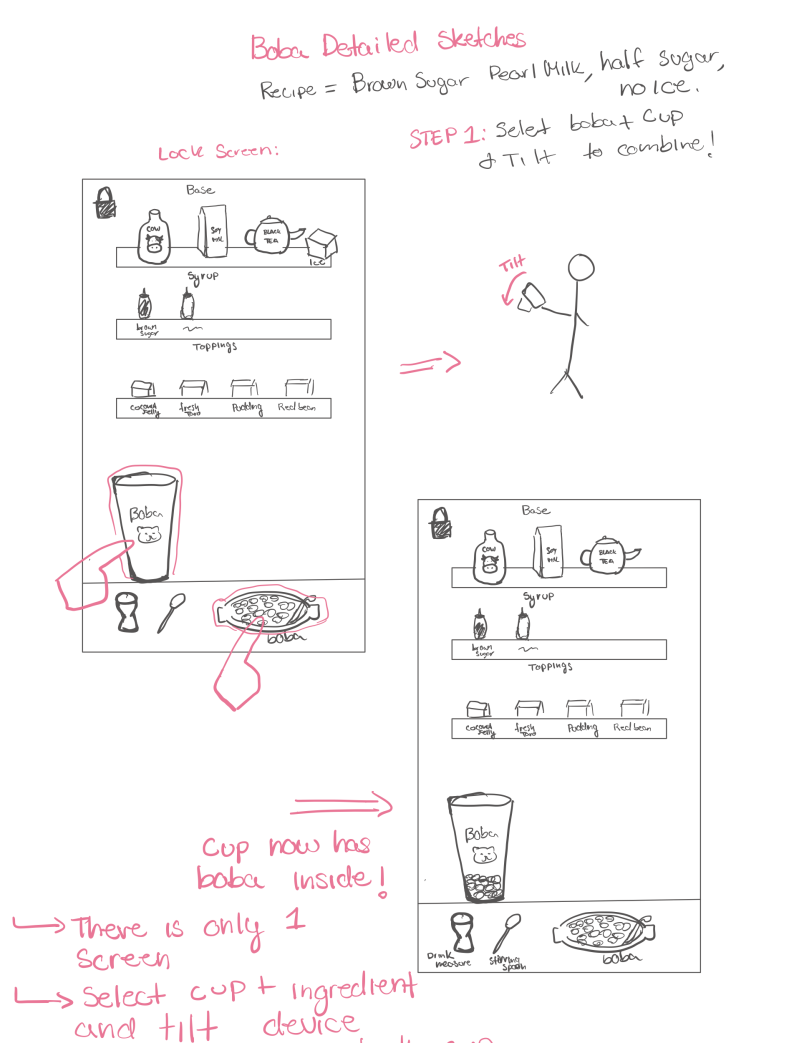 Boba Detailed Sketches
Recipe = Brown Sugar Pearl Milk, half sugar,
no ice.
STEP 1: Select boba + cup
& Tilt to combine!
Lock Screen:
Base
COW
SOY
MILK
BLACK
TEA
Ice
Syrup
brown
sugar
Toppings
coconut
jelly
fresh
Pudding
Red bean
Boba
boba
Tilt
Base
COW
SOY
MILK
BLACK
TEA
Syrup
brown
sugar
Toppings
coconut
jelly
fresh
Pudding
Red bean
Boba
Drink
measure
Stirring
spoon
boba
Cup now has
boba inside!
There is only 1
screen
Select cup + ingredient
and tilt device